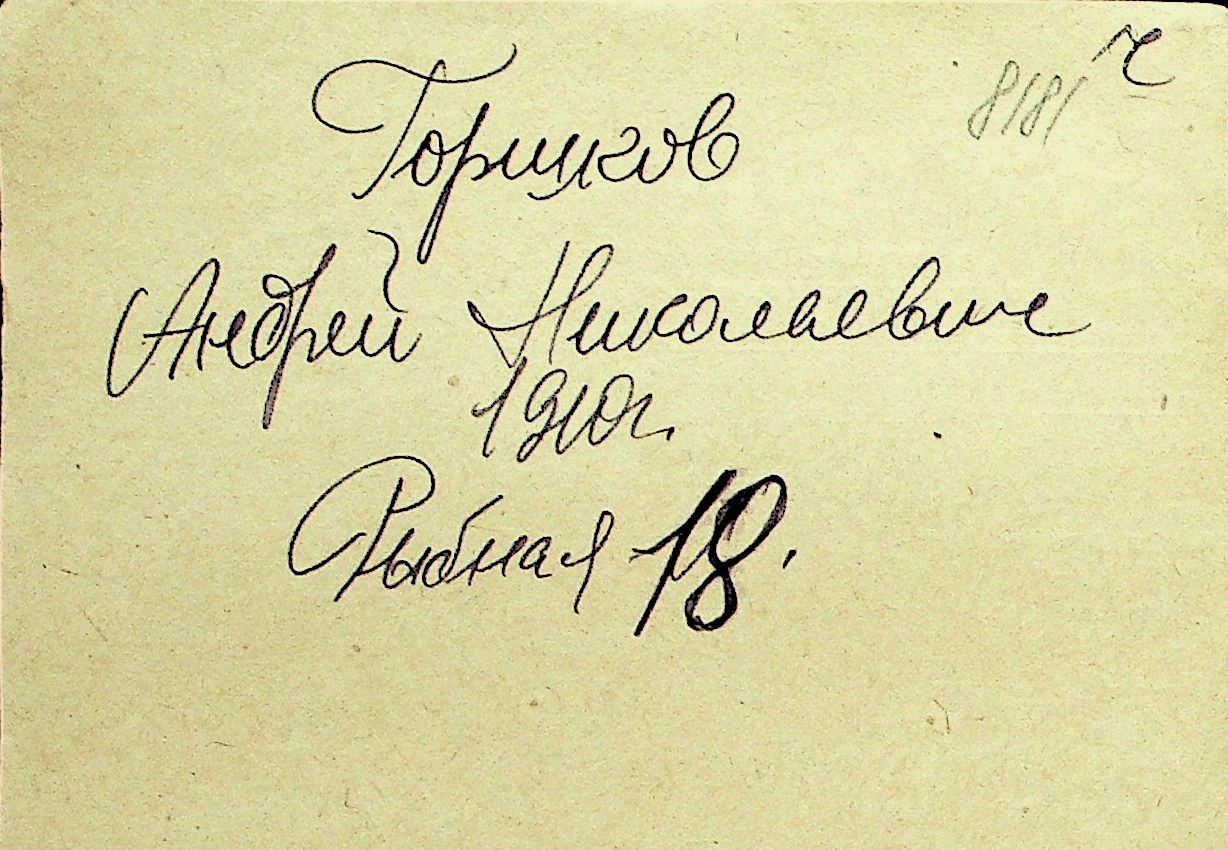 8181
Горшков
Андрей Николаевич
1910г.
Рыбная 18.